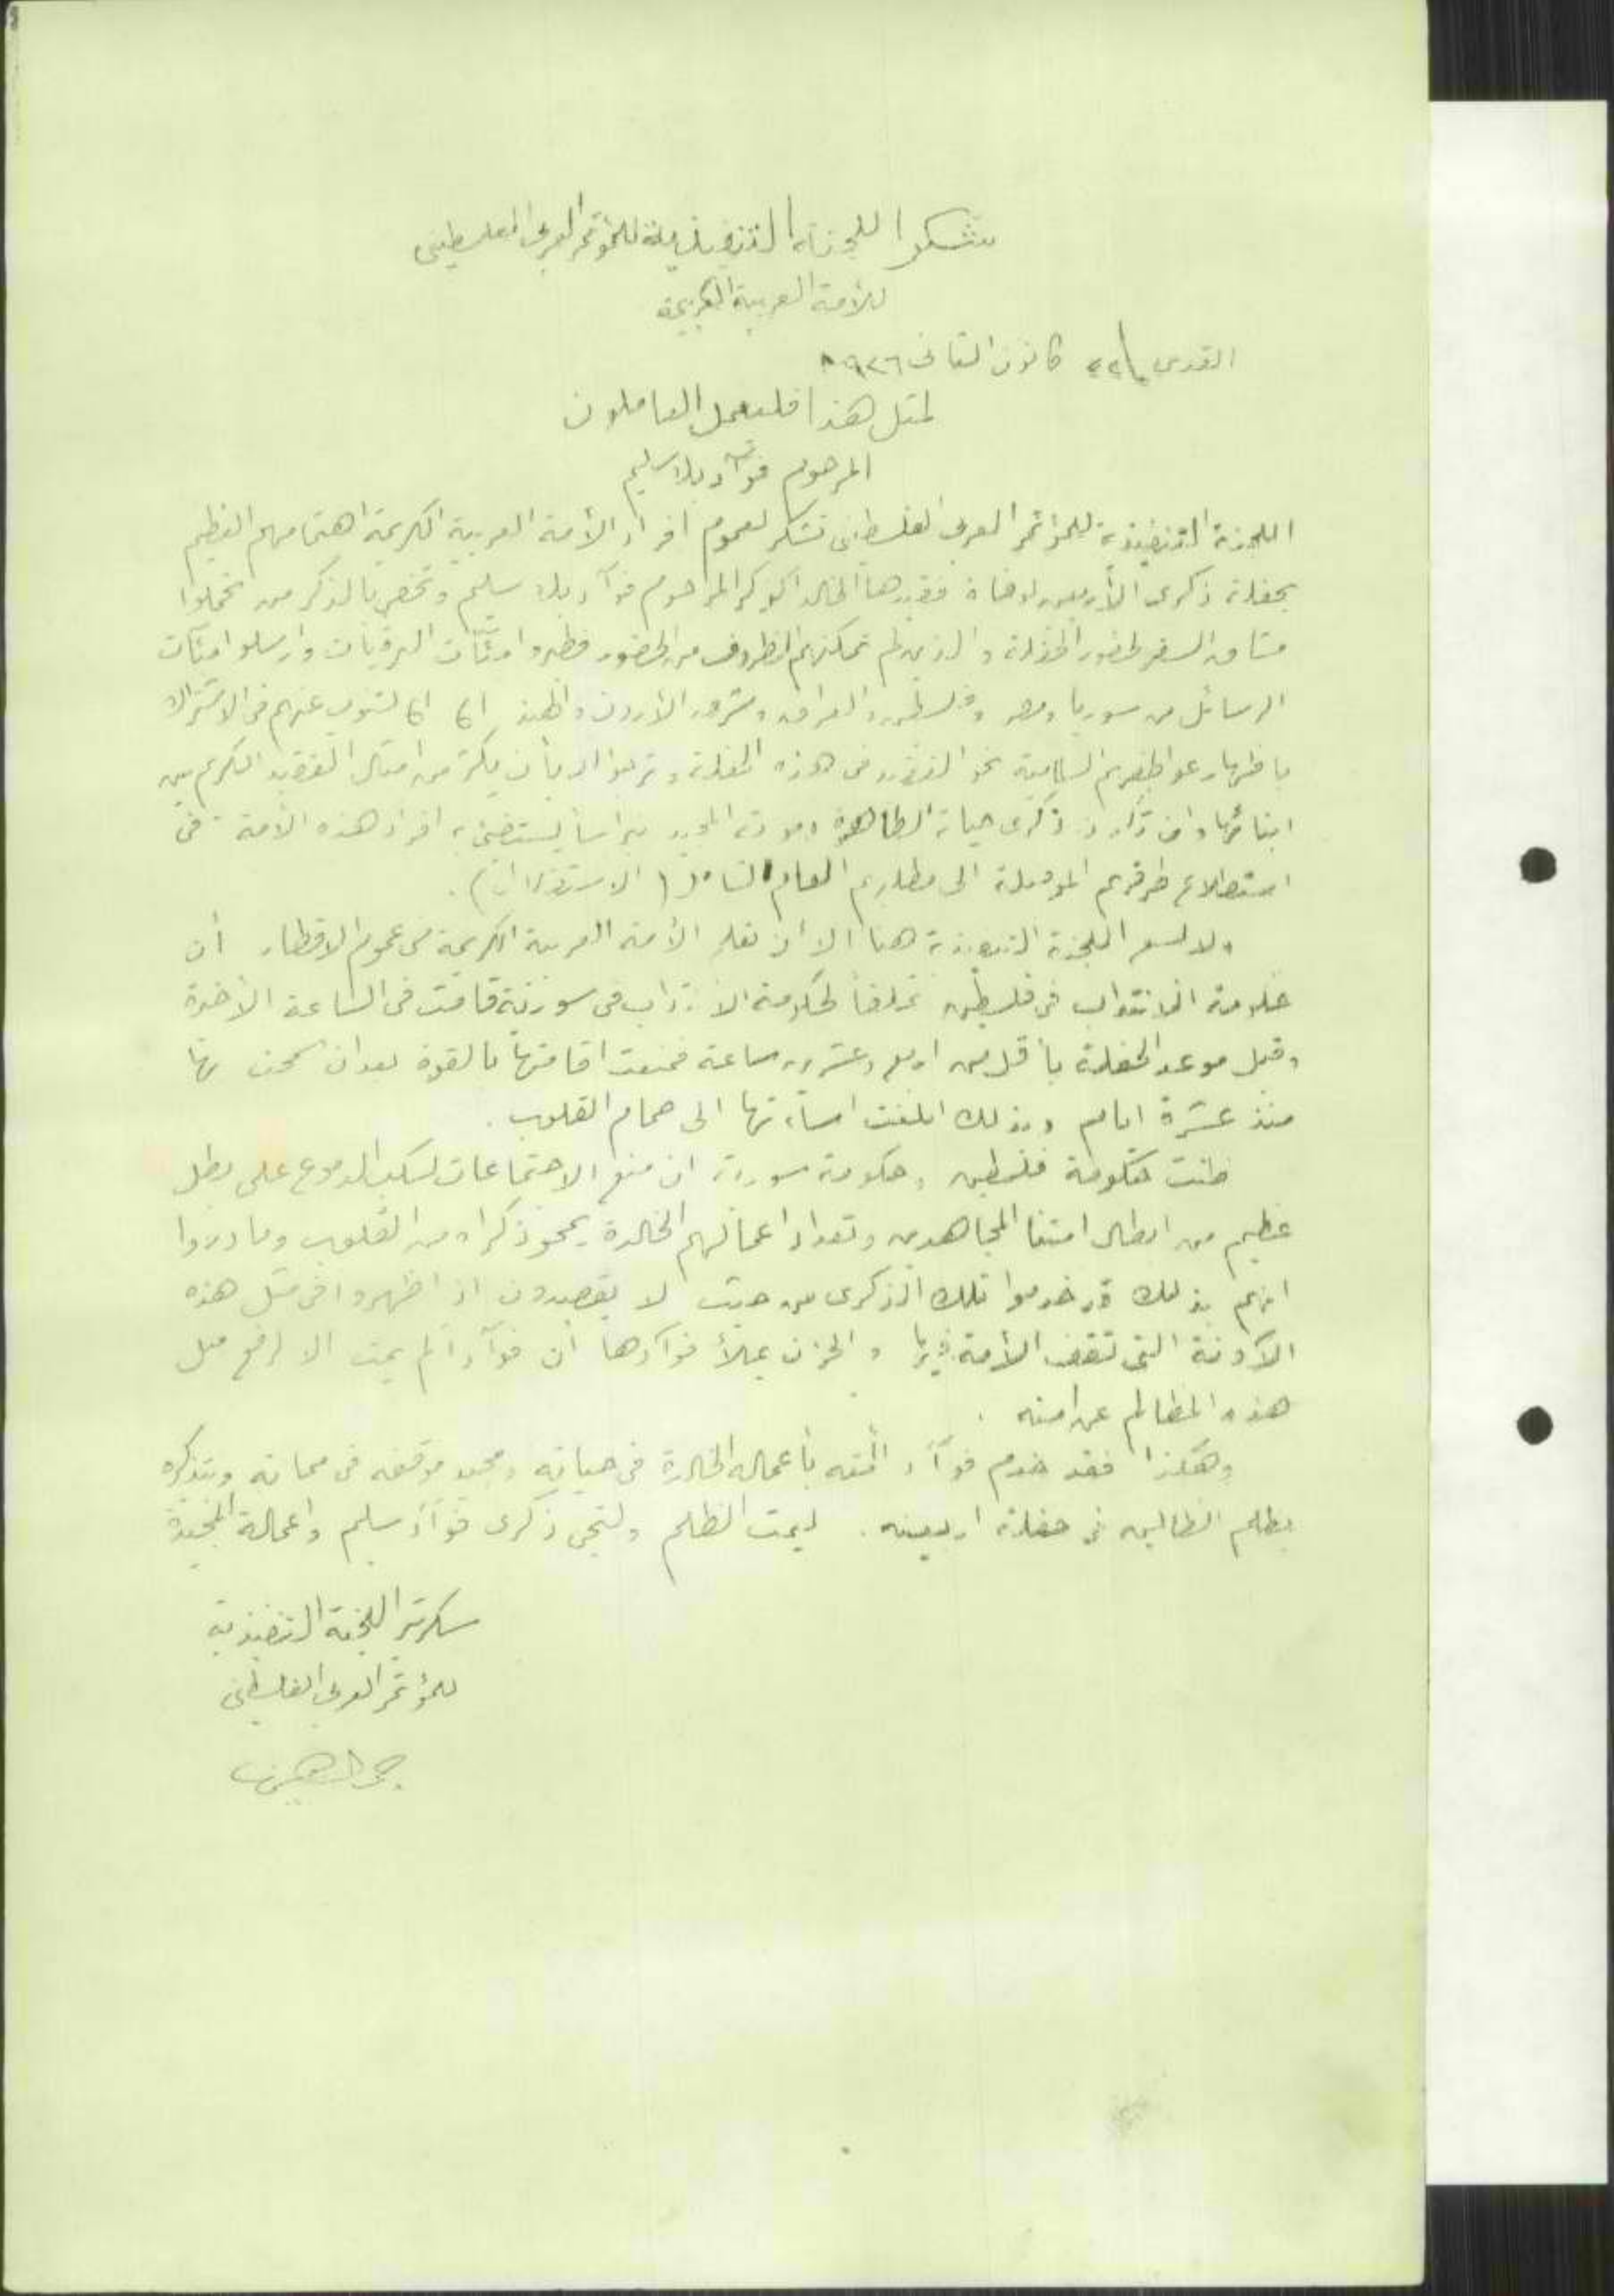 تشكر اللجنة التنفيذية للمؤتمر العربي الفلسطيني
للأمة العربية الكريمة
القدس في ٢٢ كانون الثاني ٩٢٦
لمثل هذا فليعمل العاملون
المرحوم فؤآد بك سليم
اللجنة التنفيذية للمؤتمر العربي الفلسطيني تشكر لعموم افراد الأمة العربية الكريمة اهتمامهم العظيم
بحفلة ذكرى الأربعين لوفاة فقيدها الخالد الذكر المرحوم فوآد بك سليم وتخص بالذكر من تحملوا
مشاق السفر لحضور الحفلة والذين لم تمكنهم الظروف من الحضور فطيروا مئات البرقيات وارسلوا مئآت
الرسائل من سوريا ومصر وفلسطين والعراق وشرق الأردن والهند لتنوب عنهم في الاشتراك
باظهار عواطفهم السامية نحو الفقيد في هذه الحفلة وترجو الله بأن يكثر من امثال الفقيد الكريم بين
ابنائها وان تكون ذكرى حياته الطاهرة وموته المجيد نبراساً يستضئ به افراد هذه الأمة في
استطلاع طرقهم الموصلة الى مطلبهم العام الشامل (الاستقلال).
ولا يسع اللجنة التنفيذية هنا الا أن تعلم الأمة العربية الكريمة في عموم الاقطار أن
حكومة الانتداب في فلسطين تملقاً لحكومة الانتداب في سورية قامت في الساعة الأخيرة
وقبل موعد الحفلة بأقل من اربع وعشرين ساعة فمنعت اقامتها بالقوة بعد ان سمحت بها
منذ عشرة ايام وبذلك ابلغت اساءتها الى صمام القلوب.
ظنت حكومة فلسطين وحكومة سورية ان منع الاجتماعات لسكب الدموع على بطل
عظيم من ابطال امتنا المجاهدين وتعداد اعمالهم الخالدة يمحو ذكراه من القلوب وما دروا
انهم بذلك قد خدموا تلك الذكرى من حيث لا يقصدون اذ اظهروا في مثل هذه
الآونة التي تقف الأمة فيها والحزن يملأ فوآدها أن فوآداً لم يمت الا لرفع مثل
هذه المظالم عن امته.
وهكذا فقد خدم فوآد أمته بأعماله الخالدة في حياته ومجيد موقفه في مماته وبتذكيره
بظلم الظالمين في حفلة اربعينه. ليمت الظلم ولتحي ذكرى فوآد سليم واعماله المجيدة
سكرتير اللجنة التنفيذية
للمؤتمر العربي الفلسطيني
جمال الحسيني